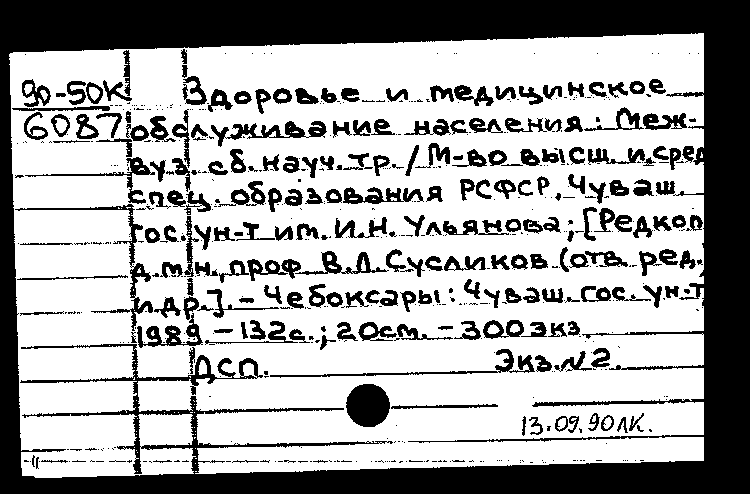 90-50К Здоровье и медицинское
6087 обслуживание населения: Меж-
вуз. сб. науч. тр. / М-во высш. и сред
спец. образования РСФСР, Чуваш.
гос. ун-т им. И.Н. Ульянова; [Редкол
д.м.н., проф. В.Л. Сусликов (отв. ред.)
и др.]. - Чебоксары: Чуваш. гос. ун-т
1989. - 132с.; 20см. - 300экз.
ДСП. Экз. N2.
13.09.90ЛК.